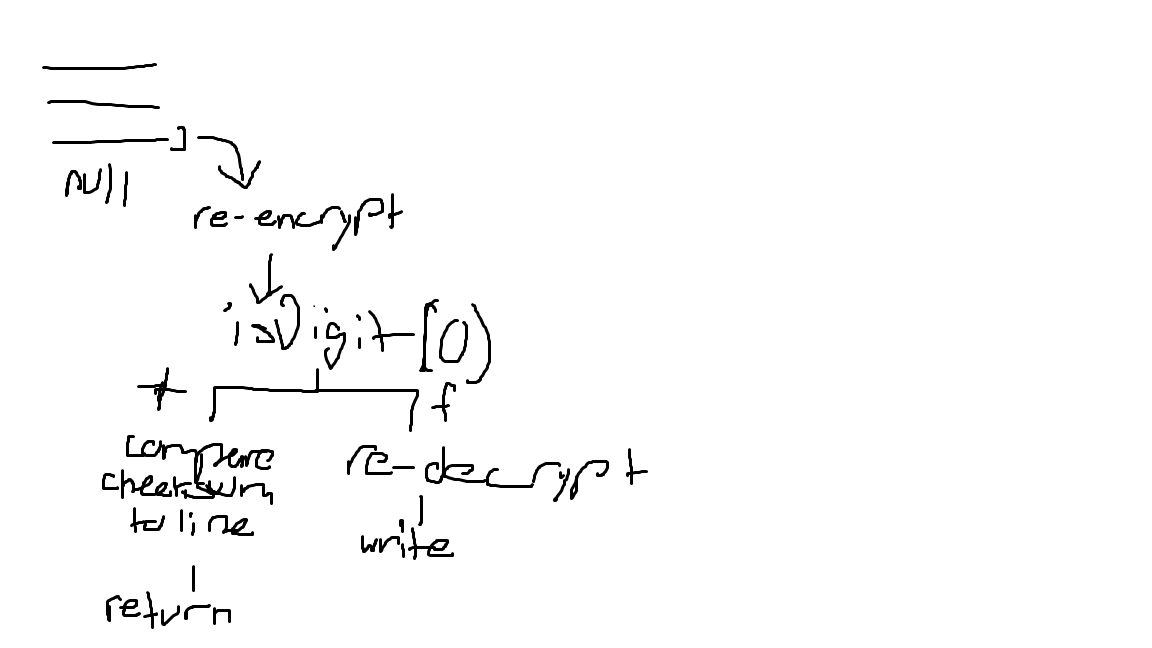 null
re-encrypt
isDigit(0)
t
f
compare
checksum
to line
re-decrypt
write
return